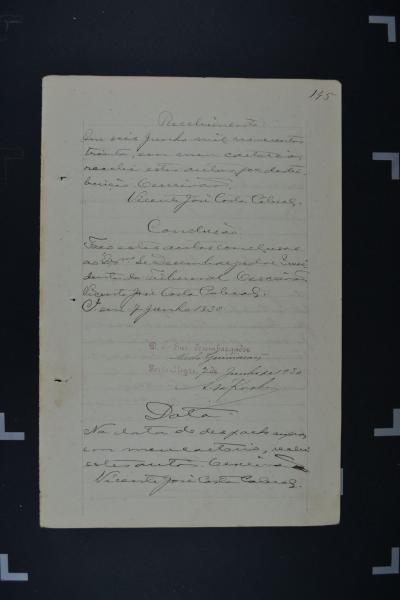 145
Recebimento
Em seis Junho mil novecentos
trinta, em meu cartorio,
recebi estes autos, por distri-
buição Escrivão,
Vicente José Costa Cabral.
Conclusão
Faço estes autos conclusos
ao Exmo. Sr. Desembargador Presi-
dente do Tribunal Escrivão
Vicente José Costa Cabral.
Em 7 Junho 1930
D. ao Snr. Desembargador
Guimarães
Porto Alegre, 7 de Junho de 1930
Data
Na data do despacho supra,
em meu cartorio, recebi
estes autos. Escrivão
Vicente José Costa Cabral.